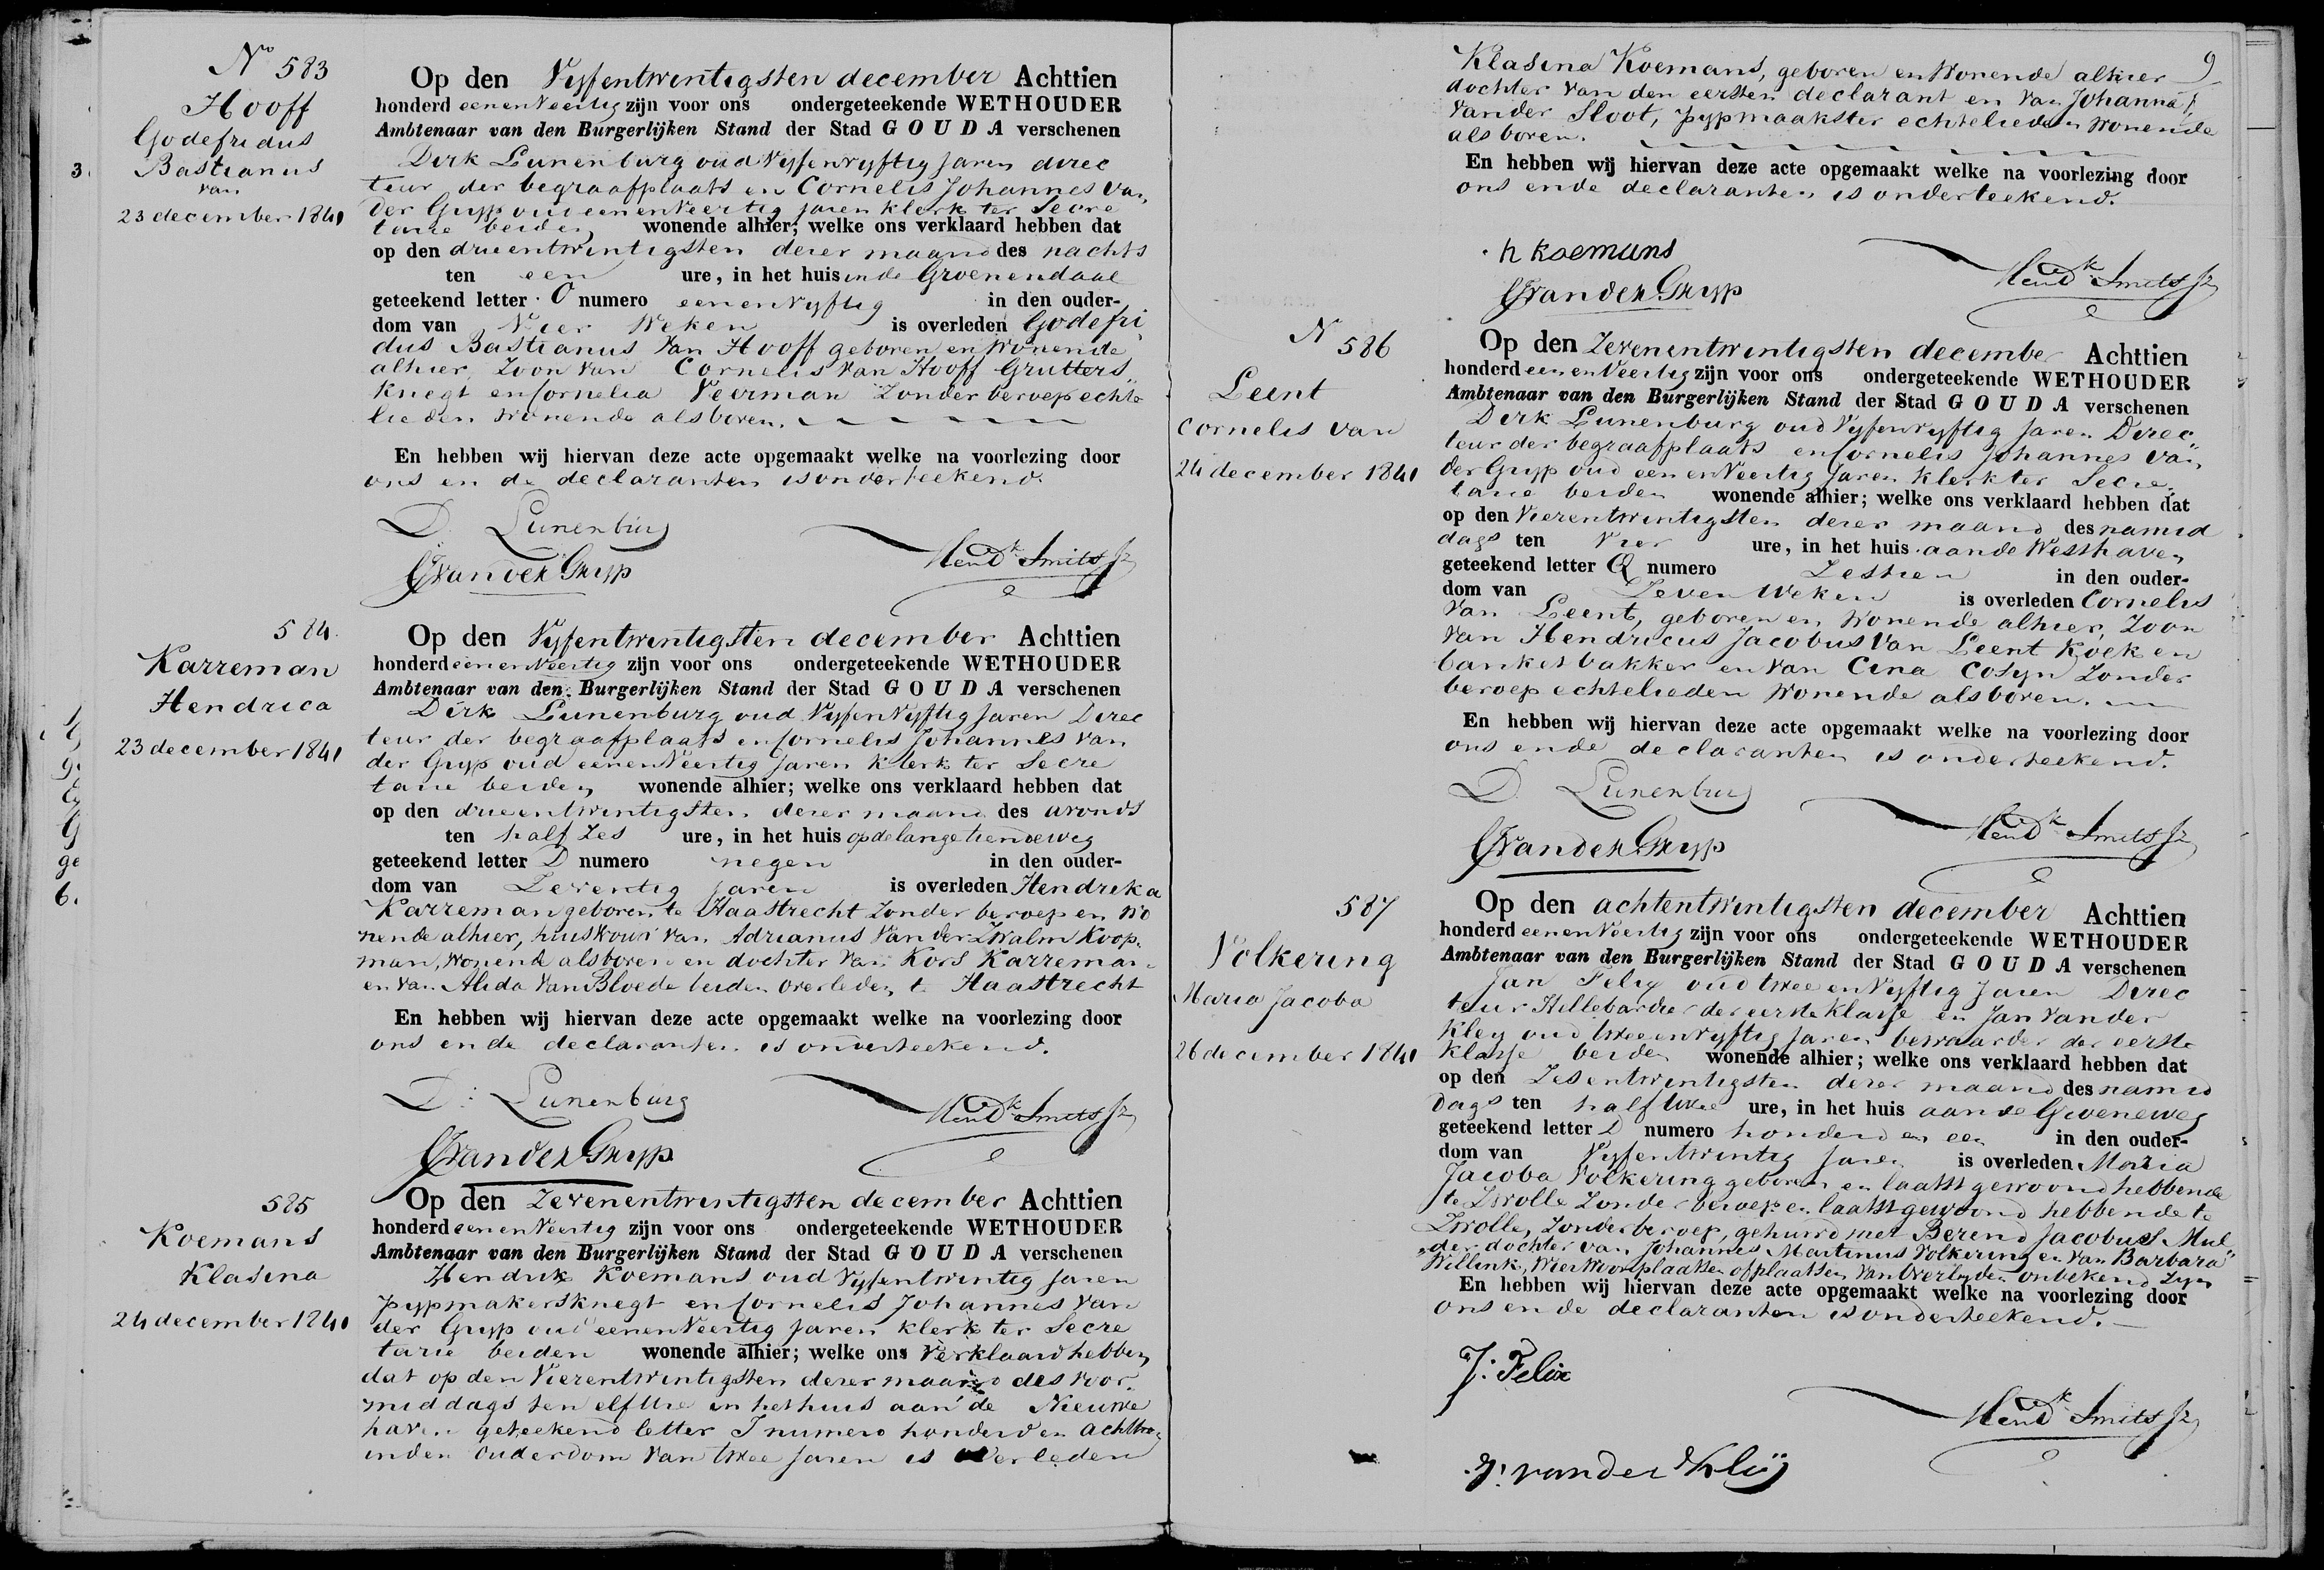 No 583
Hooff
Godefridus
Bastianus
van
23 december 1841
Op den Vyfentwintigsten december Achttien
honderd eenenVeertig zijn voor ons ondergeteekende WETHOUDER
Ambtenaar van den Burgerlijken Stand der Stad GOUDA verschenen
Dirk Lunenburg oud Vyfenvyftig Jaren direc
teur der begraafplaats en Cornelis Johannes van
der Gryp oud eenenVeertig jaren klerk ter Secre
tarie beiden wonende alhier; welke ons verklaard hebben dat
op den drieentwintigsten dezer maand des nachts
ten een ure, in het huis inde Groenendaal
geteekend letter O numero eenenVyftig in den ouder-
dom van Vier Weken is overleden Godefri
dus Bastianus Van Hooff geboren en Wonende
alhier, Zoon van Cornelis Van Hooff Grutters
knegt en Cornelia Veerman Zonder beroep echte
lieden Wonende als boven.
En hebben wij hiervan deze acte opgemaakt welke na voorlezing door
ons en de declaranten is onderteekend.
D. Lunenburg
CJvanderGryp
Hendk Smits Jz
584.
Karreman
Hendrica
23 december 1841
Op den Vyfentwintigsten december Achttien
honderd eenenVeertig zijn voor ons ondergeteekende WETHOUDER
Ambtenaar van den Burgerlijken Stand der Stad GOUDA verschenen
Dirk Lunenburg oud VyfenVyftig Jaren Direc
teur der begraafplaats en Cornelis Johannes van
der Gryp oud eenenVeertig Jaren klerk ter Secre
tarie beiden wonende alhier; welke ons verklaard hebben dat
op den drieentwintigsten dezer maand des avonds
ten half Zes ure, in het huis op de lange tiendeweg
geteekend letter D numero negen in den ouder-
dom van Zeventig jaren is overleden Hendrika
Karreman geboren te Haastrecht Zonder beroep en Wo
nende alhier, huisvrouw van Adrianus Van der Zwalm Koop-
man, Wonend als boven en dochter Van Kors Karreman
en van Alida Van Bloede beiden overleden te Haastrecht
En hebben wij hiervan deze acte opgemaakt welke na voorlezing door
ons en de declaranten is onderteekend.
D: Lunenburg
CJvanderGryp
Hendk Smits Jz
585
Koemans
Klasina
24 december 1841
Op den Zevenentwintigsten december Achttien
honderd eenenVeertig zijn voor ons ondergeteekende WETHOUDER
Ambtenaar van den Burgerlijken Stand der Stad GOUDA verschenen
Hendrik Koemans oud Vyfentwintig Jaren
pypmakersknegt en Cornelis Johannes van
der Gryp oud eenenVeertig Jaren klerk ter Secre
tarie beiden wonende alhier; welke ons Verklaard hebben
dat op den Vierentwintigsten dezer maand des voor-
middags ten elf Ure in het huis aan de Nieuwe
haven geteekend letter I numero honderd en
inden Ouderdom Van twee Jaren is overleden
9
Klasina Koemans, geboren en Wonende alhier
dochter van den eersten declarant en van Johanna
vander Sloot, pypmaakster echtelieden Wonende
als boven.
En hebben wij hiervan deze acte opgemaakt welke na voorlezing door
ons ende declaranten is onderteekend.
h koemans
CJvanderGryp
Hendk Smits Jz
N 586
Leent
Cornelis van
24 december 1841
Op den Zevenentwintigsten december Achttien
honderd eenenVeertig zijn voor ons ondergeteekende WETHOUDER
Ambtenaar van den Burgerlijken Stand der Stad GOUDA verschenen
Dirk Lunenburg oud Vyfenvyftig Jaren Direc
teur der begraafplaats en Cornelis Johannes van
der Gryp oud eenenVeertig Jaren klerk ter Secre
tarie beiden wonende alhier; welke ons verklaard hebben dat
op den Vierentwintigsten dezer maand des namid
dags ten Vier ure, in het huis aande Westhaven
geteekend letter Q numero Zestien in den ouder-
dom van Zeven Weken is overleden Cornelis
Van Leent, geboren en Wonende alhier, Zoon
van Hendricus Jacobus Van Leent Koek en
banketbakker en van Cina Cosyn Zonder
beroep echtelieden Wonende als boven.
En hebben wij hiervan deze acte opgemaakt welke na voorlezing door
ons ende declaranten is onderteekend.
D. Lunenburg
CJvanderGryp
Hendk Smits Jz
587
Volkering
Maria Jacoba
26 december 1841
Op den achtentwintigsten december Achttien
honderd eenenVeertig zijn voor ons ondergeteekende WETHOUDER
Ambtenaar van den Burgerlijken Stand der Stad GOUDA verschenen
Jan Felix oud twee enVyftig Jaren Direc
teur Hillebardier der eerste Klasse en Jan Vander
Kley oud tweeenvyftig jaren bewaarder der eerste
Klasse beiden wonende alhier; welke ons verklaard hebben dat
op den Zesentwintigsten dezer maand des namid
dags ten half twee ure, in het huis aan de Groeneweg
geteekend letter D numero honderd en een in den ouder-
dom van Vyfentwintig Jaren is overleden Maria
Jacoba Volkering geboren en laatst gewoond hebbende
te Zwolle Zonder beroep en laatst gewoond hebbende te
Zwolle, Zonder beroep, gehuwd met Berend Jacobus Mul
der dochter van Johannes Martinus Volkering en van Barbara
Willink, Wier Woonplaatsen of plaatsen van Overlyden onbekend zyn
En hebben wij hiervan deze acte opgemaakt welke na voorlezing door
ons en de declaranten is onderteekend.
J: Felix
Hendk Smits Jz
J: van der Kleij